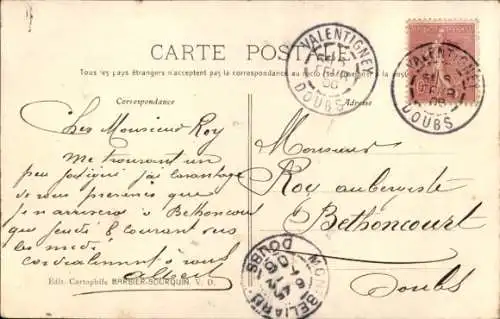 CARTE POSTALE
Tous les pays étrangers n'acceptent pas la correspondance au recto
Correspondance
Adresse
VALENTIGNEY
DOUBS
VALENTIGNEY
DOUBS
Cher Monsieur Roy
Me trouvant un
peu fatigué j'ai l'avantage
de vous prévenir que
je n'arriverai à Bethoncourt
que jeudi courant vers
les midi
cordialement à vous
Albert
Monsieur
Roy aubergiste
Bethoncourt
Doubs
MONTBELIARD
DOUBS
Edit. Cartophile BARBIER-SOURQUIN. V. D.